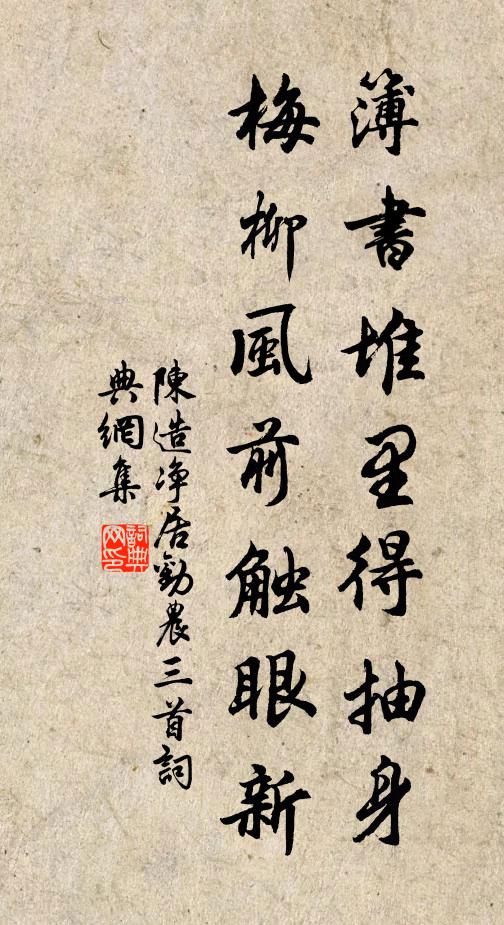 簿書堆里得抽身
梅柳風前触眼新
陳造净居勸農三首詞
典網集
詞典
网印